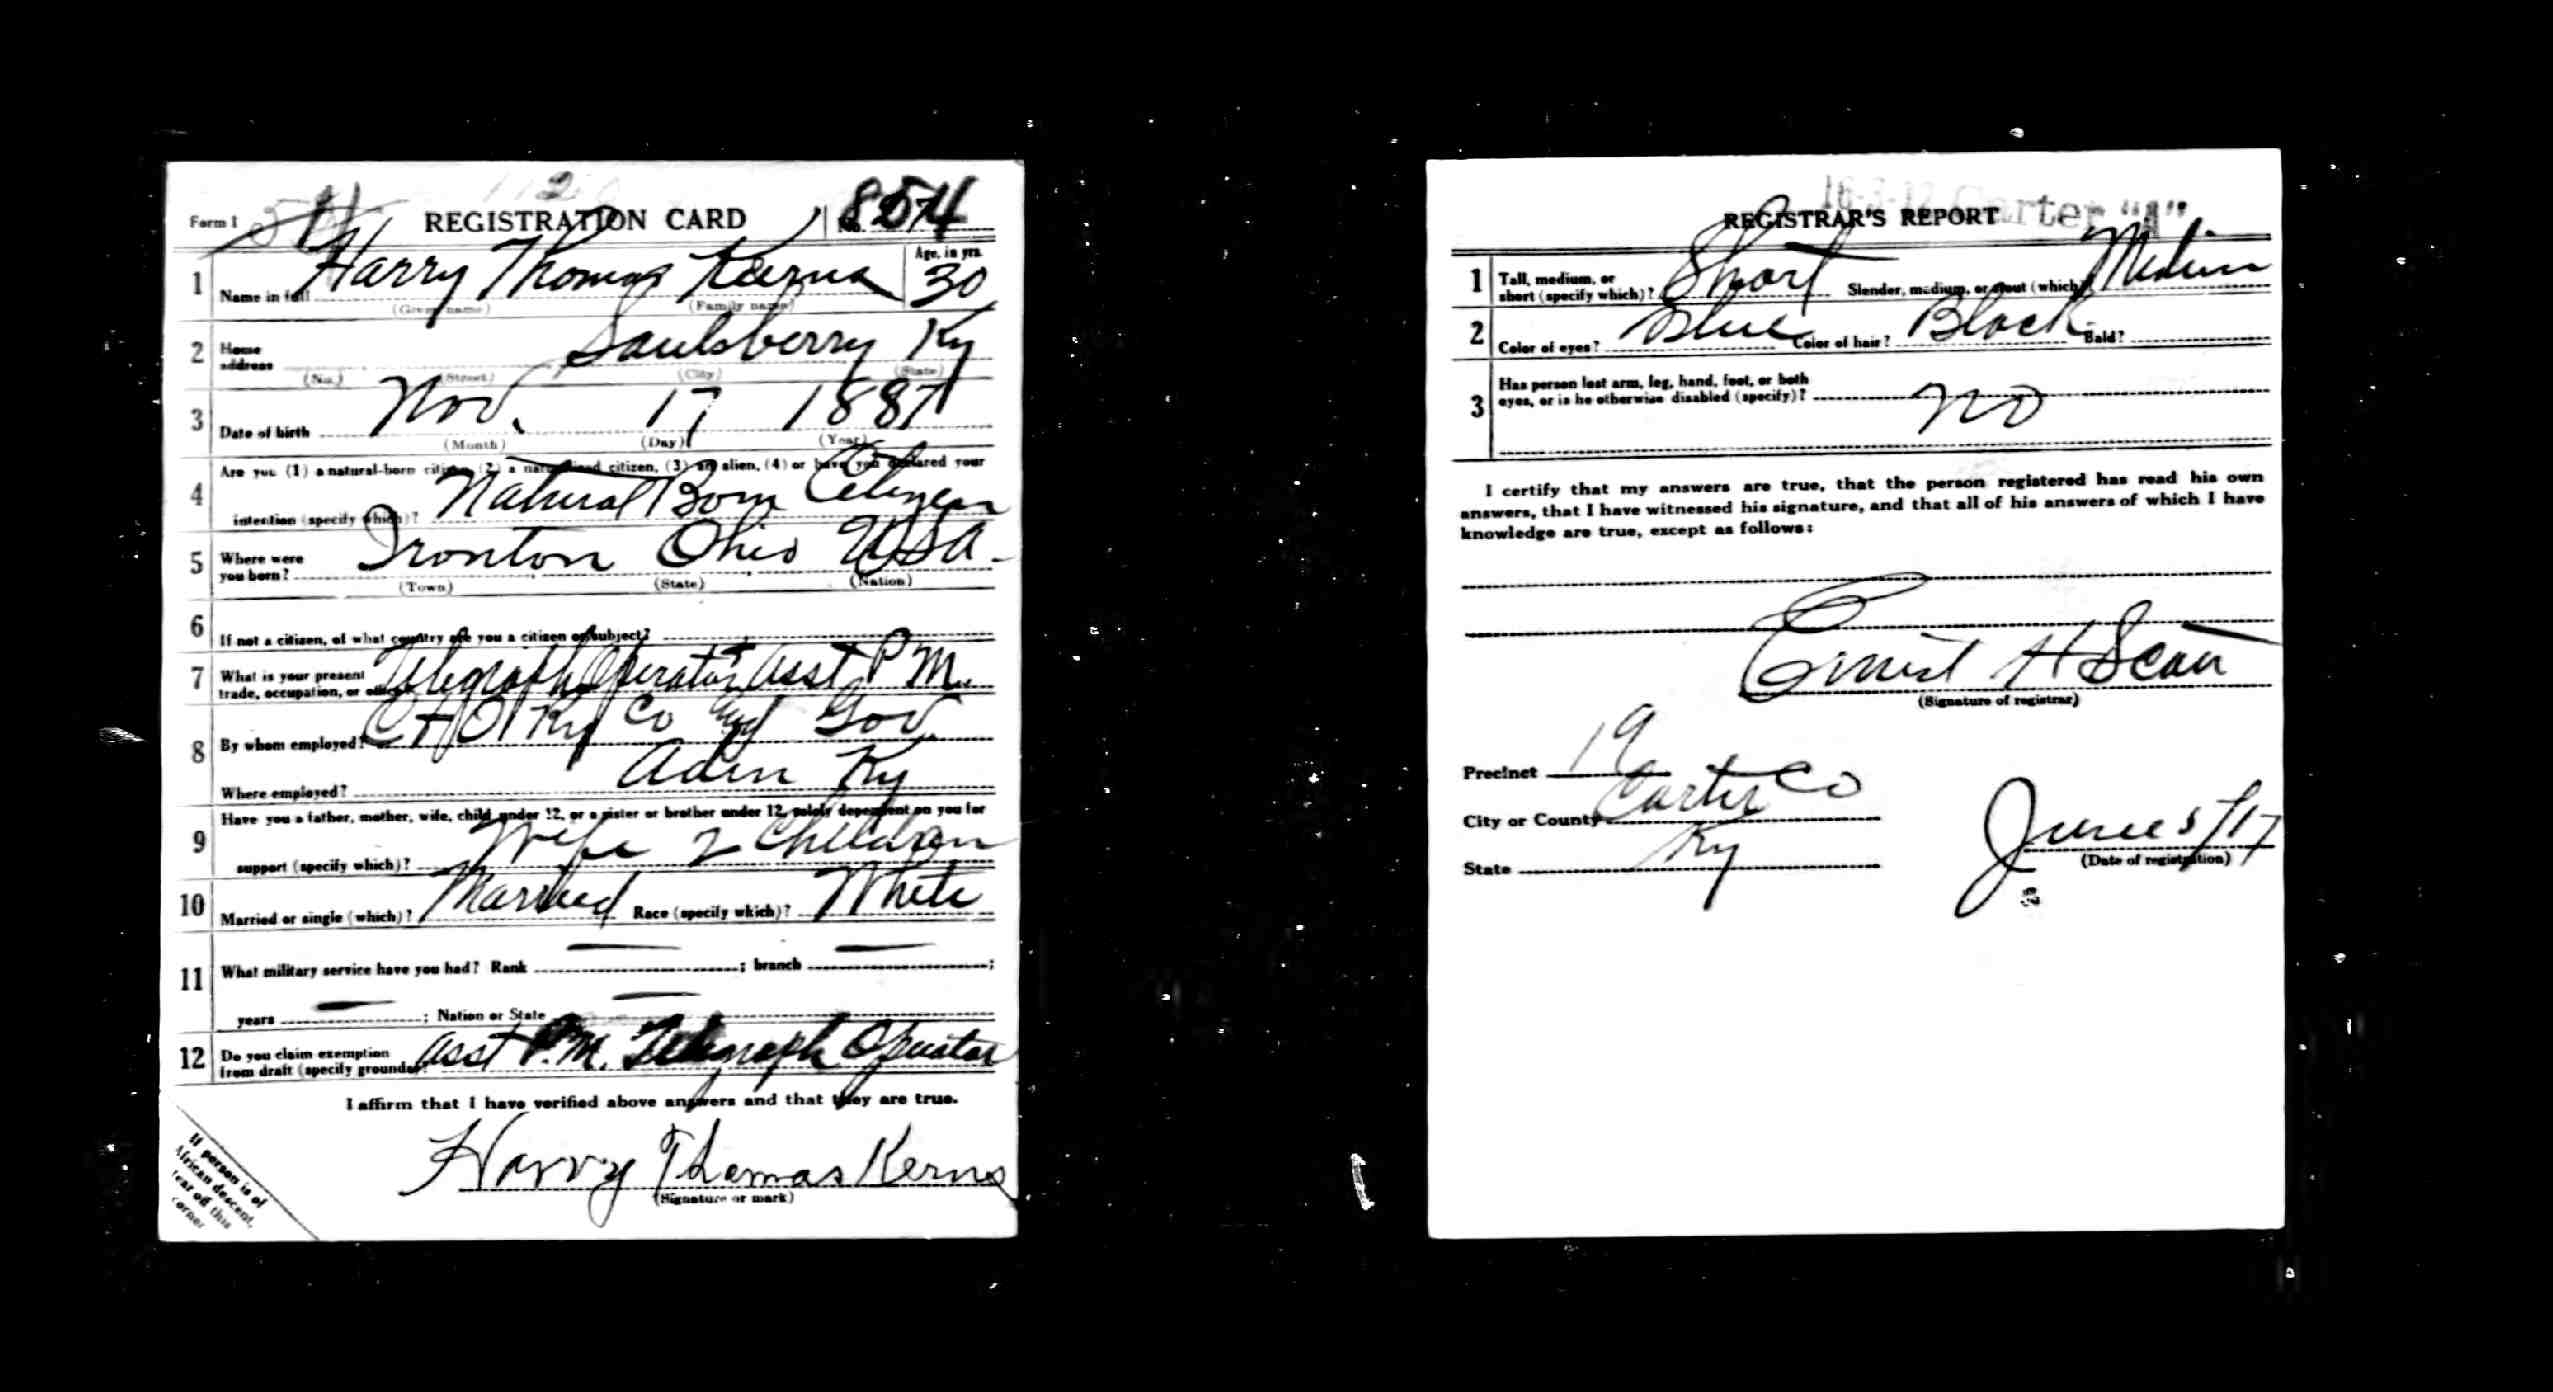 Form 1 REGISTRATION CARD No. 
1 Name in full Harry Thomas Kerns Age, in yrs. 30
(Given name) (Family name)
2 Home address Saulsberry Ky
(No.) (Street) (City) (State)
3 Date of birth Nov. 17 1887
(Month) (Day) (Year)
Are you (1) a natural-born citizen, (2) a naturalized citizen, (3) an alien, (4) or have you declared your
4 intention (specify which)? Natural Born Citizean
5 Where were you born? Ironton Ohio USA
(Town) (State) (Nation)
6 If not a citizen, of what country are you a citizen or subject?
7 What is your present trade, occupation, or office? Telegraph Operator + Asst P M.
8 By whom employed? C + O Ry Co and Gov.
Where employed? Aden Ky
Have you a father, mother, wife, child under 12, or a sister or brother under 12, solely dependent on you for
9 support (specify which)? Wife 2 Children
10 Married or single (which)? Married Race (specify which)? White
11 What military service have you had? Rank — ; branch — ;
years — ; Nation or State —
12 Do you claim exemption from draft (specify grounds)? Asst P.M. Telegraph Operator
I affirm that I have verified above answers and that they are true.
Harry Thomas Kerns
(Signature or mark)
If person is of
African descent,
tear off this
corner
Carter "A"
REGISTRAR'S REPORT
1 Tall, medium, or short (specify which)? Short Slender, medium, or stout (which)? Medium
2 Color of eyes? Blue Color of hair? Black Bald?
Has person lost arm, leg, hand, foot, or both
3 eyes, or is he otherwise disabled (specify)? no
I certify that my answers are true, that the person registered has read his own
answers, that I have witnessed his signature, and that all of his answers of which I have
knowledge are true, except as follows:
Ernest H Scott
(Signature of registrar)
Precinct 19
City or County Carter Co
State Ky
June 5/17
(Date of registration)